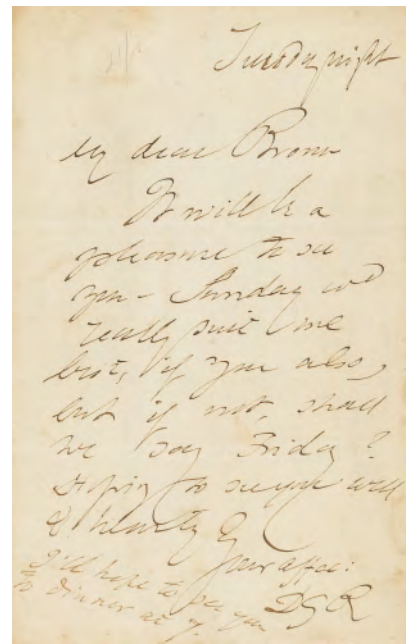 Tuesday night
My dear Brown
It will be a
pleasure to see
you – Sunday wd
really suit me
best, if you also,
but if not, shall
we say Friday?
Hoping to see you well
& hearty
Your affec:
DGR
I'll hope to see you
to dinner at 7.